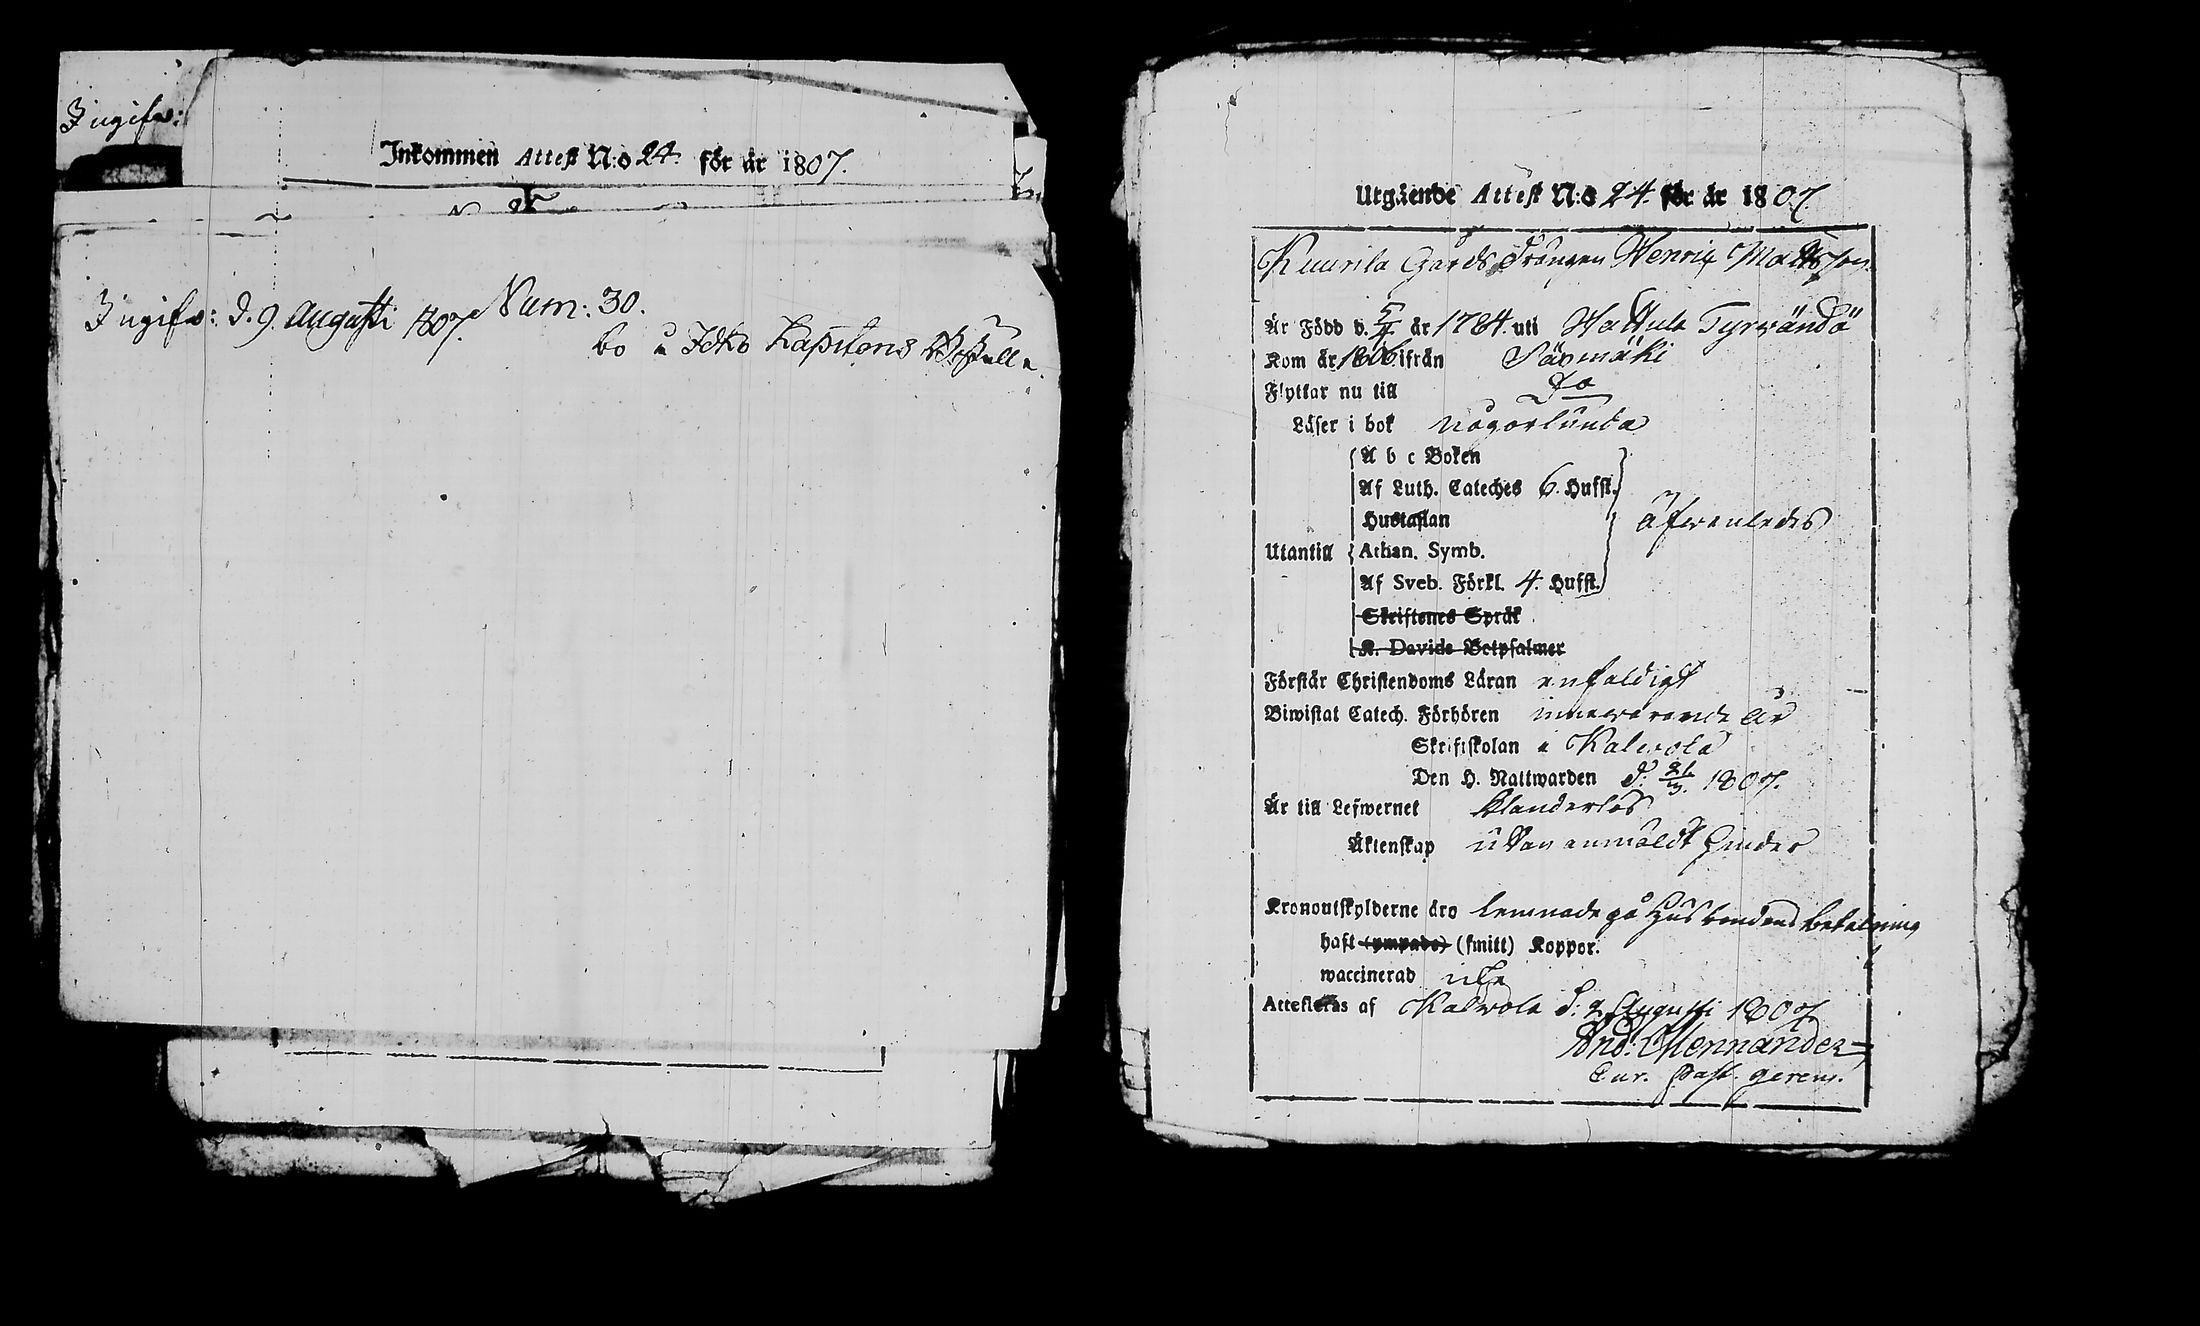 Ingifv:
Inkommen Attest N:o 24. för år 1807.
Ingifv: d. 9 Augusti 1807. Num: 30.
bo
Utgående Attest N:o 24. för år 1807.
Kuurila Gårds Drängen Henric Mattsson
Är Född d. 5/4. år 1784. uti Hattula Tyrwändö
Kom år 1806. ifrån Säxmäki
Flyttar nu till Do
Läser i bok någorlunda
A b c Boken
Af Luth. Cateches 6. Hufst.
Hustaflan
äfwenledes
Utantill Athan. Symb.
Af Sveb. Förkl. 4. Hufst.
Skriftenes Språk
K. Davids Botpsalmer
Förstår Christendoms Läran enfaldigt
Biwistat Catech. Förhören innewarande år
Skriftskolan i Kalvola
Den H. Nattwarden d. 1807.
Är till Lefwernet klanderlös
Äktenskap utan anmäldt hinder
Kronoutskylderne äro lemnade på Husbondens betalning
haft (ympade) (smitt) Koppor.
waccinerad icke
Attesteras af Kalvola d. 2 Augusti 1807
And: Mennander
Cur. Past. gerens.